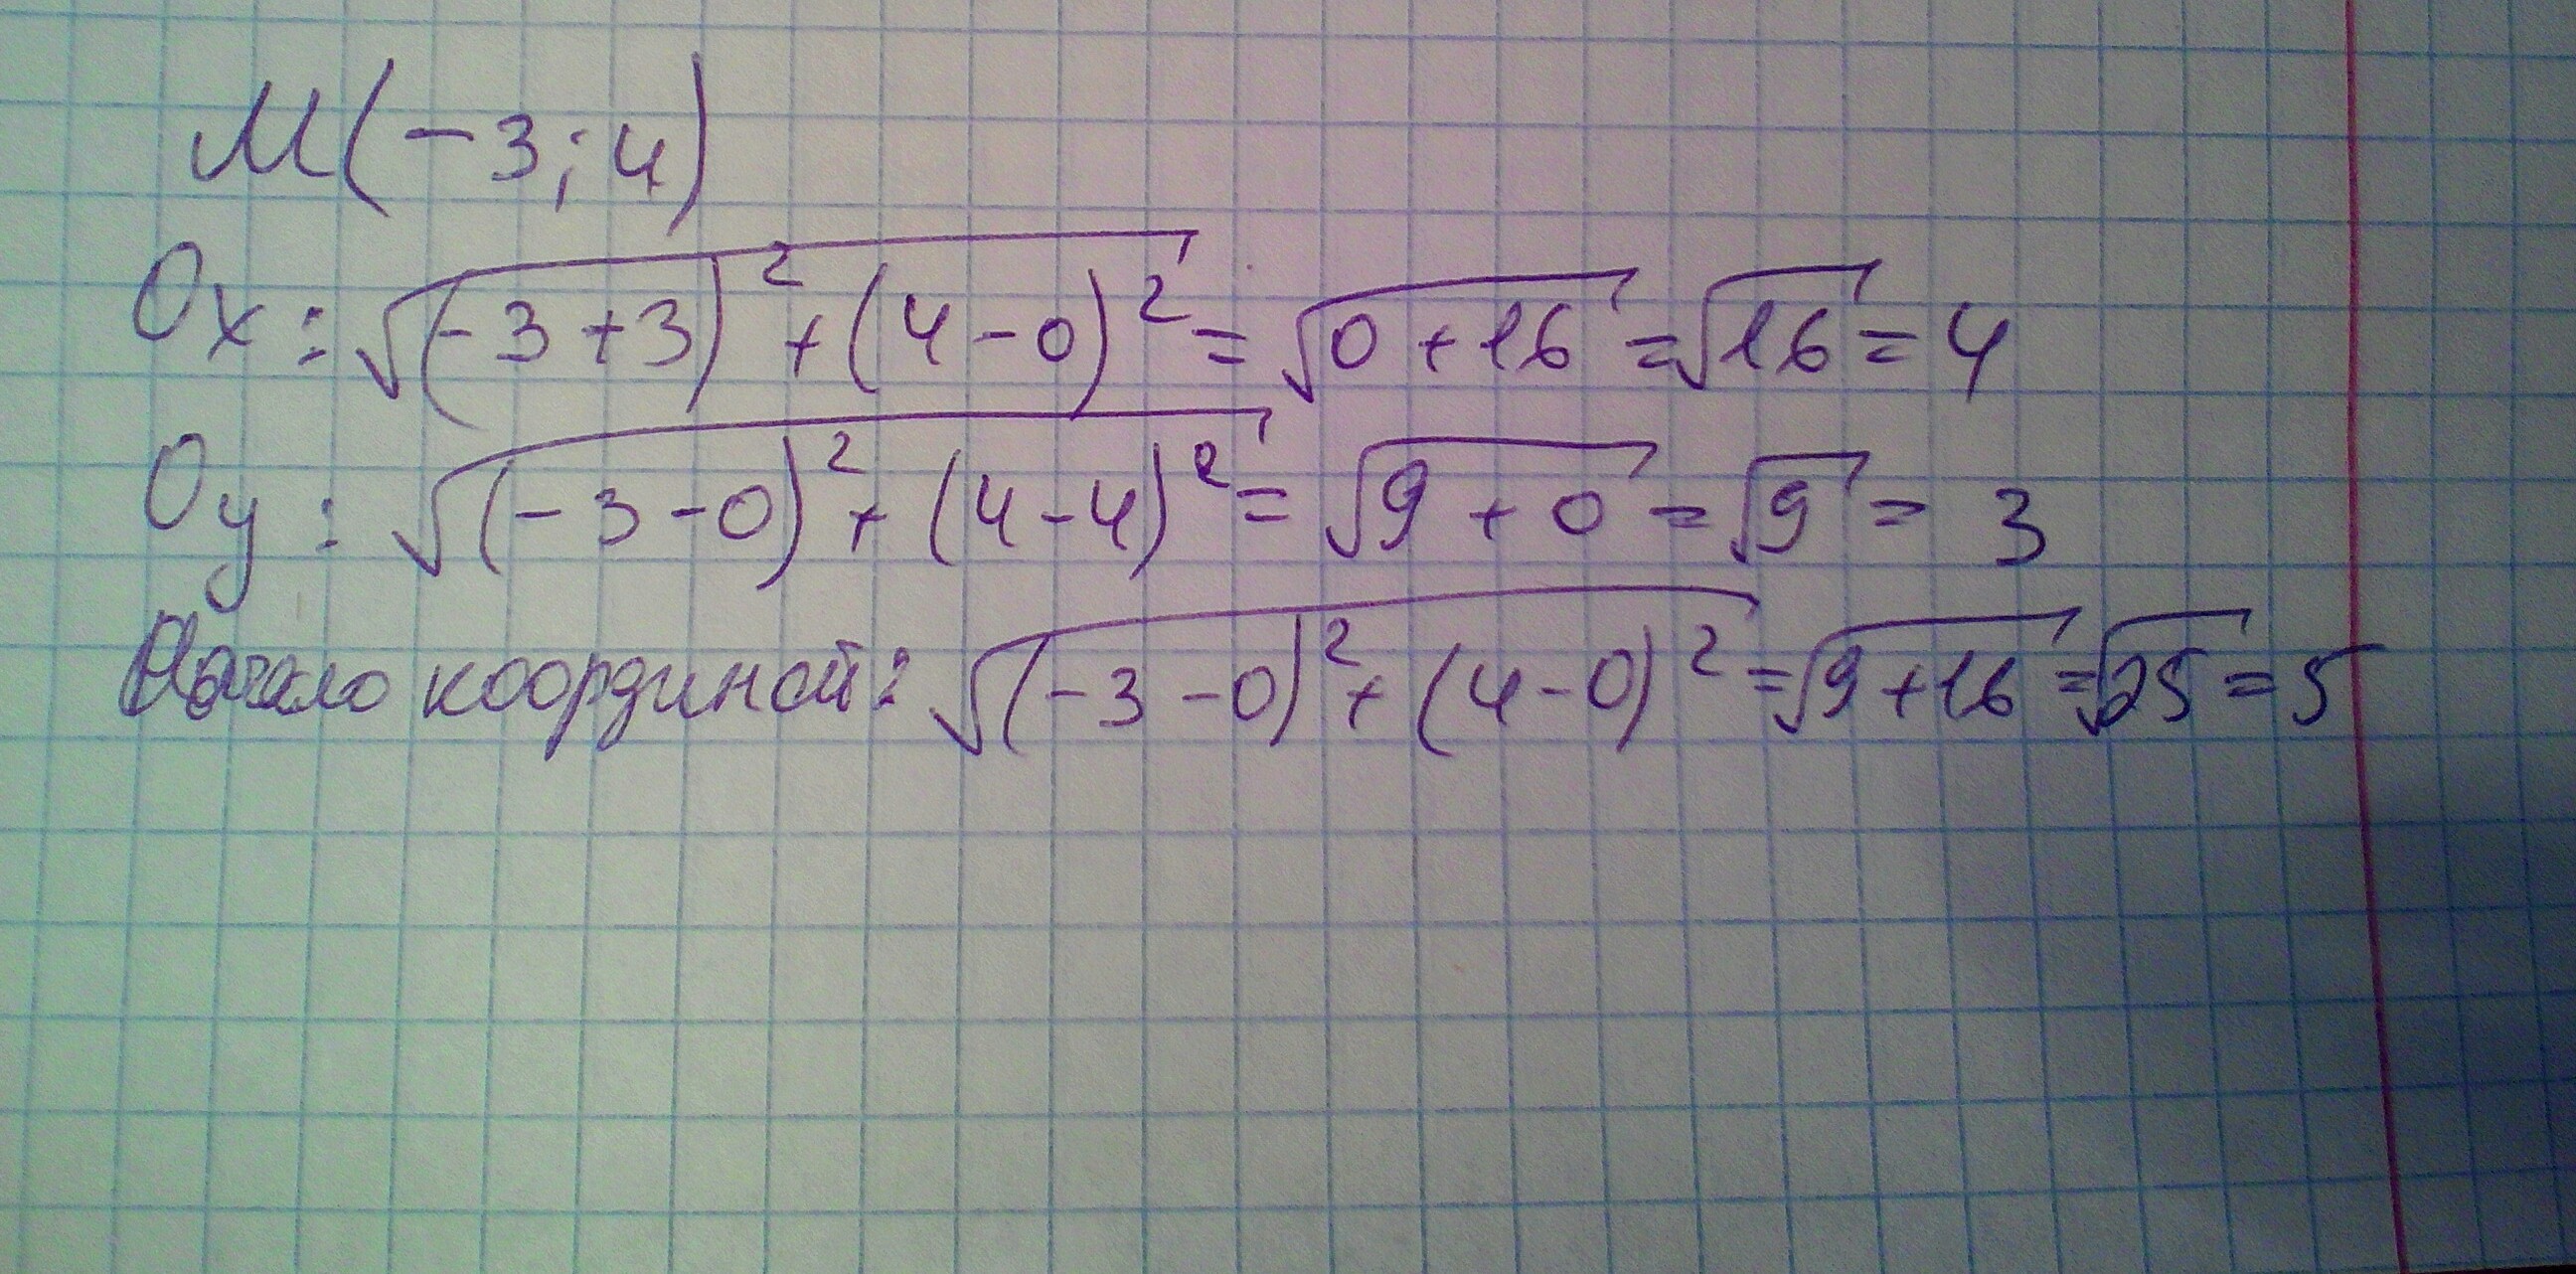 M(-3;4)
Ox: √((-3+3)²+(4-0)²) = √(0+16) = √16 = 4
Oy: √((-3-0)²+(4-4)²) = √(9+0) = √9 = 3
Начало координат: √((-3-0)²+(4-0)²) = √(9+16) = √25 = 5